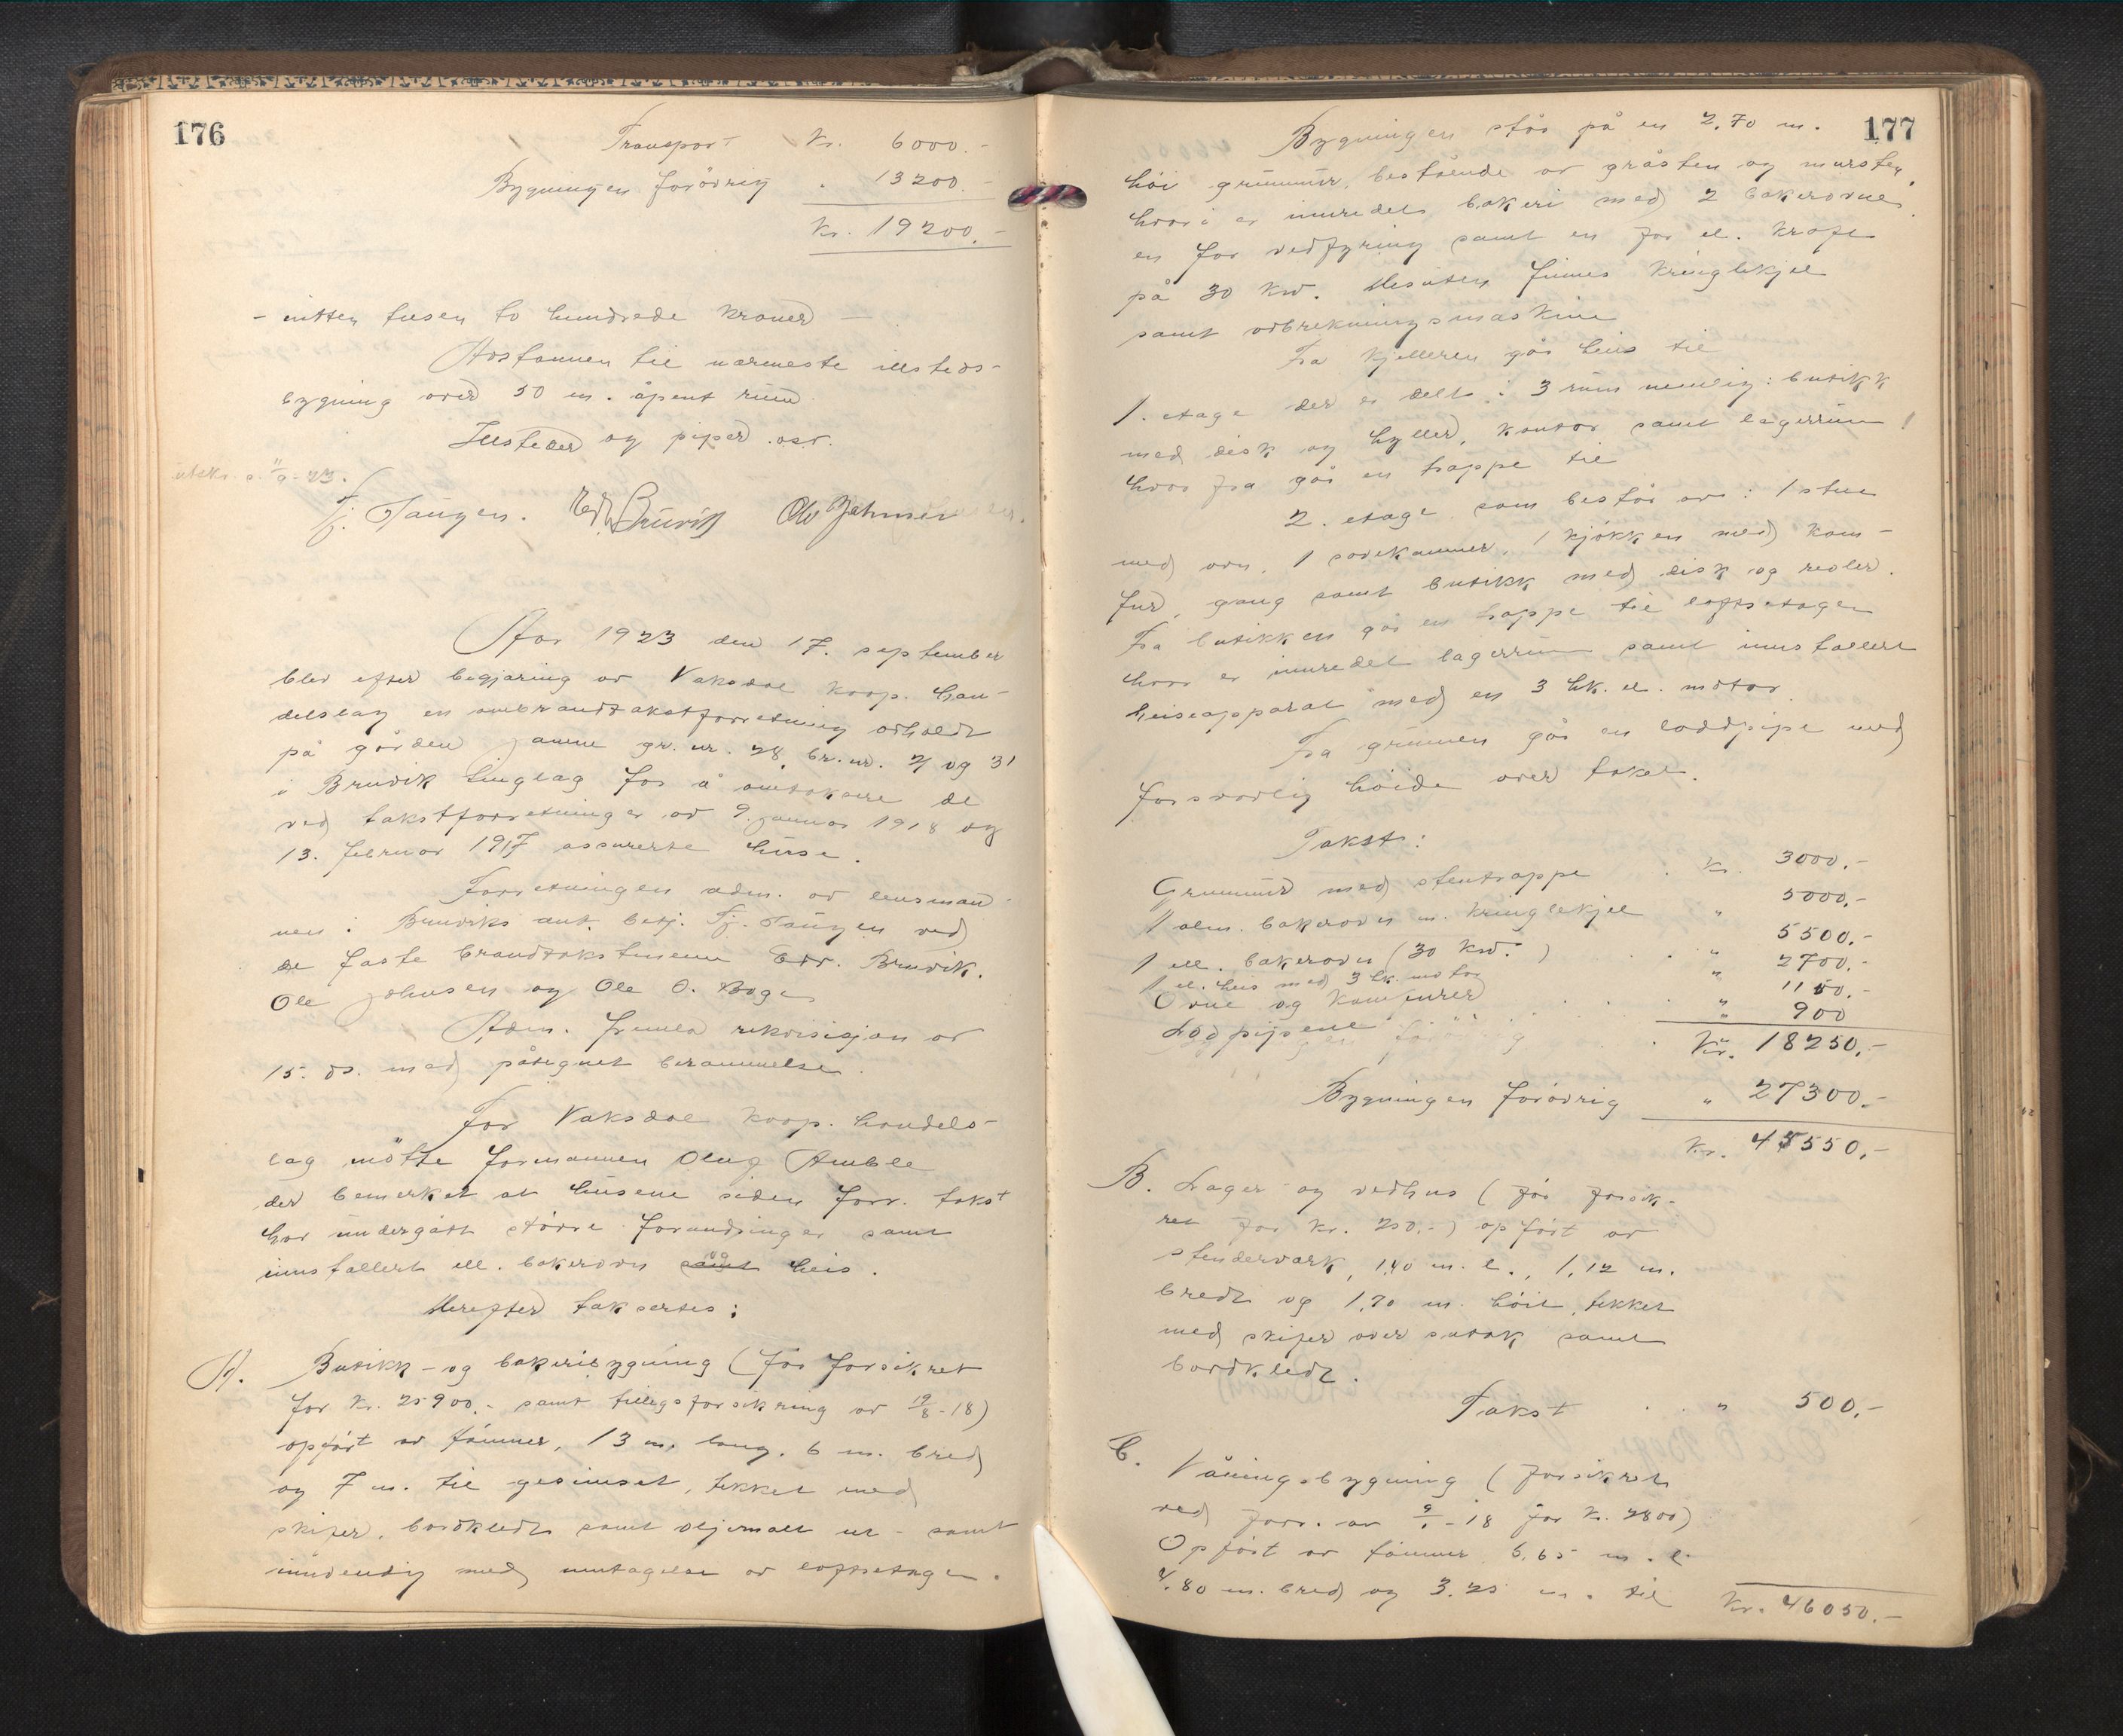 176
Transport Kr. 6000.-
Bygningen forøvrig " 13200.-
Kr. 19200.-
- nitten tusen to hundrede kroner -
Avstannen til nærmeste illsteds-
bygning over 50 m. åpent rum
Illsteder og piper osv.
utskr. s. 11/9-23.
Tj. Taugen. Edv. Bruvik Ole Johnsen
Aar 1923 den 17. september
blev efter begjæring av Vaksdal koop. han-
delslag en ombrandtakstforretning avholdt
på gården Jamne gr. nr. 28, br. nr. 21 og 31
i Bruvik tinglag for å omtaksere de
ved takstforretninger av 9. januar 1918 og
13. februar 1917 assurerte huse.
Forretningen adm. av lensmand-
nen i Bruviks aut. betj. Tj. Taugen ved
de faste brandtakstmenn Edv. Bruvik,
Ole Johnsen og Ole O. Boge
Adm. fremla rekvisisjon av
15. ds. med påtegnet berammelse.
For Vaksdal koop. handels-
lag møtte formannen Olug Amble
der bemerket at husene siden forr. takst
har undergått større forandringer samt
innstallert ell. bakerovn samt og heis.
Derefter taksertes:
A. Butikk- og bakeribygning (før forsikret
for kr. 25900.- samt tillegsforsikring av 19/8-18)
opført av tømmer, 13 m. lang, 6 m. bred
og 7 m. til gesimset, tekket med
skifer, bordkledt samt oljemalt ut- samt
innvendig med unntagelse av loftsetagen.
177
Bygningen står på en 2,70 m.
høi grunnmur, bestående av gråsten og mursten,
hvori er innredet bakeri med 2 bakerovner,
en for vedfyring samt en for el. kraft
på 30 kw. Desuten finnes kringlekjel
samt utbrekningsmaskine
Fra kjelleren går heis til
1. etage der er delt i 3 rum nemlig: butikk
med disk og hyller, kontor samt lagerrum
hvor fra går en trappe til
2. etage som består av: 1 stue
med ovn, 1 sovekammer, 1 kjøkken med kom-
fur, gang samt butikk med disk og reoler.
Fra butikken går en trappe til loftsetagen
hvor er innredet lagerrum samt innstallert
heiseapparat med en 3 hk. el. motor.
Fra grunnen går en loddpipe med
forsvarlig høide over taket.
Takst:
Grunnmur med stentrappe . kr. 3000.-
1 alm. bakerovn m. kringlekjel " 5000.-
1 ell. bakerovn (30 kw.) . . " 5500.-
1 el. heis med 3 hk. motor " 2700.-
Ovne og komfurer . . . " 1150.-
Lodpipene . " 900
Kr. 18250.-
Bygningen forøvrig " 27300.-
Kr. 45550.-
B. Lager- og vedhus (før forsik-
ret for kr. 250.-) opført av
stenderverk, 1,40 m. l., 1,12 m.
bredt og 1,70 m. høit, tekket
med skifer over sutak samt
bordkledt.
Takst . . " 500.-
C. Våningsbygning (forsikret
ved forr. av 9/1-18 for kr. 2800)
Opført av tømmer 6,65 m. l.
4,80 m. bred og 3,25 m. til
Kr. 46050.-